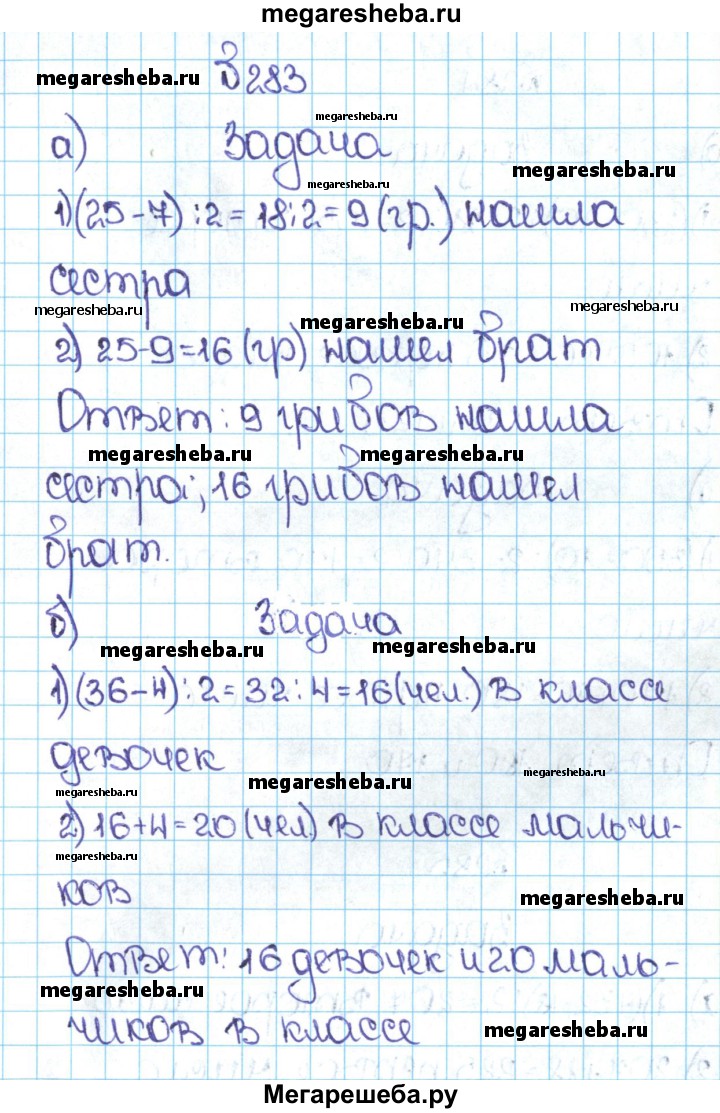 megaresheba.ru
megaresheba.ru
283
megaresheba.ru
а) Задача
megaresheba.ru
megaresheba.ru
1) (25-7):2=18:2=9 (гр.) нашла
сестра
megaresheba.ru
megaresheba.ru
megaresheba.ru
2) 25-9=16 (гр) нашел брат
Ответ: 9 грибов нашла
megaresheba.ru
megaresheba.ru
сестра; 16 грибов нашел
брат.
б) Задача
megaresheba.ru
megaresheba.ru
1) (36-4):2=32:4=16(чел.) в классе
девочек
megaresheba.ru
megaresheba.ru
megaresheba.ru
2) 16+4=20 (чел) в классе мальчи-
megaresheba.ru
ков
megaresheba.ru
Ответ: 16 девочек и 20 маль-
megaresheba.ru
чиков в классе
megaresheba.ru
Мегарешеба.ру